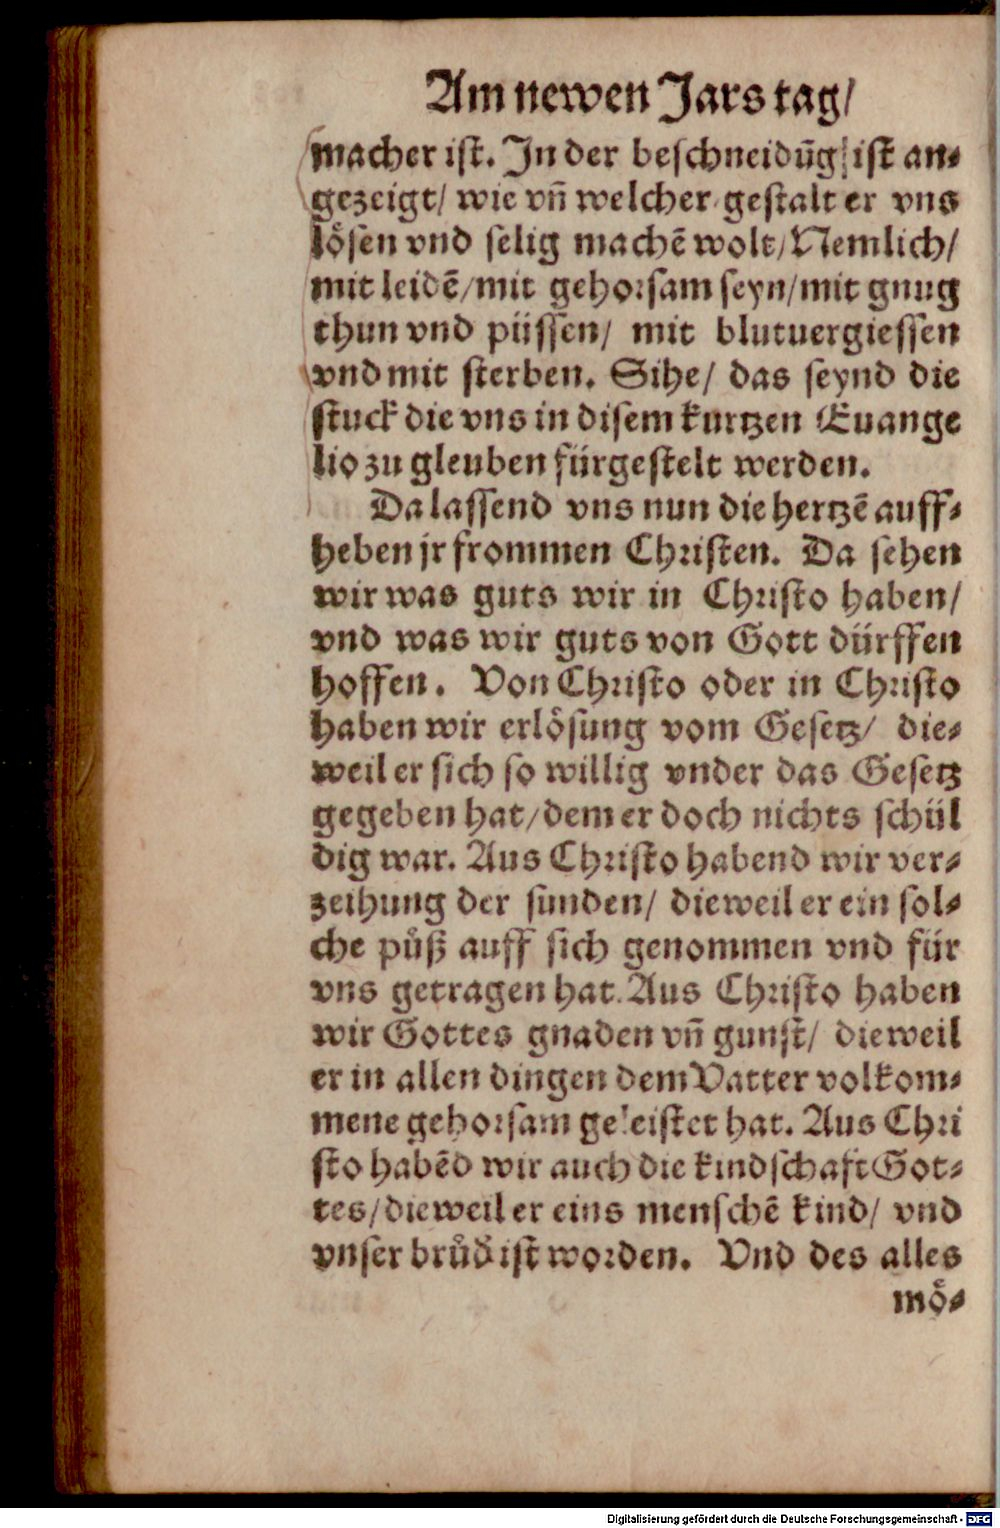 Am newen Jars tag/
macher ist. In der beschneidūg ist an⸗
gezeigt/ wie vn̄ welcher gestalt er vns
lösen vnd selig machē wolt/ Nemlich/
mit leidē/ mit gehorsam seyn/ mit gnug
thun vnd püssen/ mit blutuergiessen
vnd mit sterben. Sihe/ das seynd die
stuck die vns in disem kurtzen Euange
lio zu gleuben fürgestelt werden.
Da lassend vns nun die hertzē auff⸗
heben jr frommen Christen. Da sehen
wir was guts wir in Christo haben/
vnd was wir guts von Gott dürffen
hoffen. Von Christo oder in Christo
haben wir erlösung vom Gesetz/ die⸗
weil er sich so willig vnder das Gesetz
gegeben hat/ dem er doch nichts schül
dig war. Aus Christo habend wir ver⸗
zeihung der sunden/ dieweil er ein sol⸗
che půß auff sich genommen vnd für
vns getragen hat. Aus Christo haben
wir Gottes gnaden vn̄ gunst/ dieweil
er in allen dingen dem Vatter volkom⸗
mene gehorsam geleistet hat. Aus Chri
sto habēd wir auch die kindschaft Got⸗
tes/ dieweil er eins menschē kind/ vnd
vnser brůd̃ ist worden. Vnd des alles
mö⸗
Digitalisierung gefördert durch die Deutsche Forschungsgemeinschaft - DFG